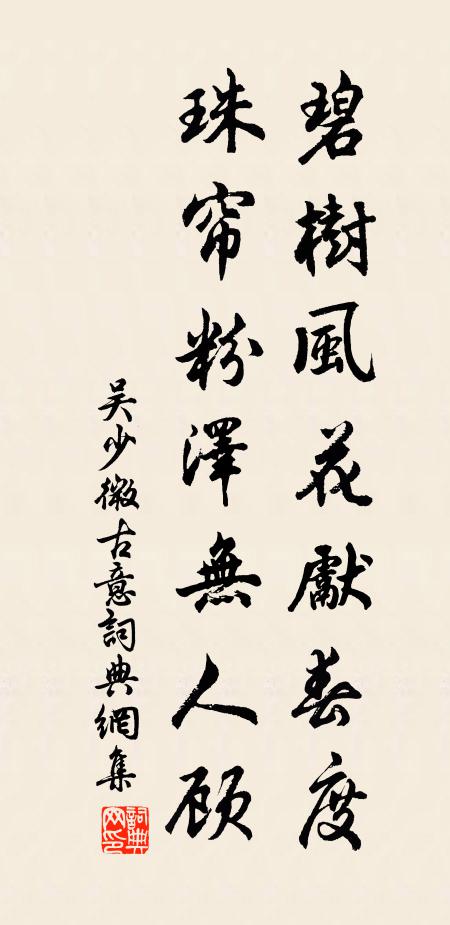 碧樹風花獻春度
珠帘粉澤無人顾
吴少微古意詞典網集
詞典網印